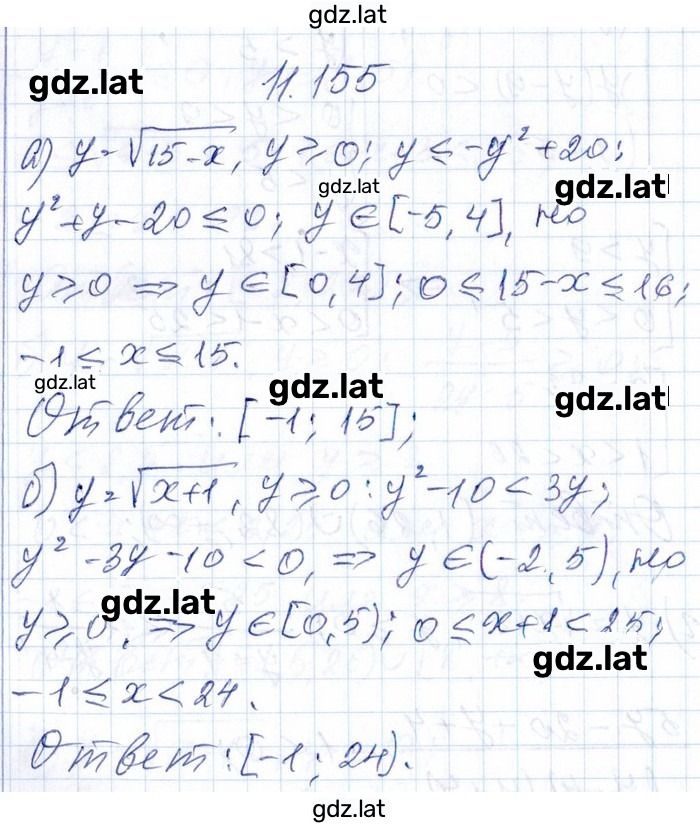 gdz.lat
gdz.lat
11.155
а) y = √15-x, y ⩾ 0; y ≤ -y² + 20;
gdz.lat gdz.lat
y² + y - 20 ≤ 0; y ∈ [-5, 4], но
y ⩾ 0 ⇒ y ∈ [0, 4]; 0 ≤ 15-x ≤ 16;
-1 ≤ x ≤ 15.
gdz.lat gdz.lat gdz.lat
Ответ: [-1; 15];
б) y = √x+1, y ⩾ 0: y² - 10 < 3y;
y² - 3y - 10 < 0, ⇒ y ∈ (-2, 5), но
gdz.lat
y ⩾ 0, ⇒ y ∈ [0, 5); 0 ≤ x+1 < 25;
gdz.lat
-1 ≤ x < 24.
Ответ: [-1; 24).
gdz.lat